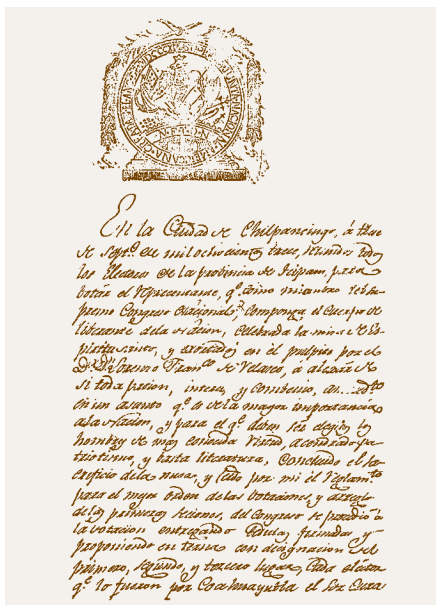 En la Ciudad de Chilpancingo, á trece
de Sept.e de mil ochocientos trece, reunidos todos
los Electores de la provincia de Tecpam, para
botár el Representante, q.e como miembro del Su-
premo Congreso Nacional, componga el Cuerpo de-
liberante de la Nacion, celebrada la misa de Es-
piritu santo, y exhortado en el pulpito por el
D.r D. Lorenso Fran.co de Velasco, á alejar de
si toda pacion, interes, y convenio,
en un asunto q.e es de la mayor importancia
a la Nacion, y para el q.e deben ser elegidos los
hombres de mas conocida virtud, acendrado pa-
triotismo, y basta literatura, Concluido el Sa-
crificio de la misa, y leido por mi el Reglam.to
para el mejor orden de las botaciones, y arreglo
de las primeras seciones, del Congreso se procedió á
la botacion entregando Cedulas firmadas y
proponiendo en terna con designacion del
primero, segundo, y tercero lugar, Cada elector
q.e lo fueron por Coahuayutla el Sor Cura